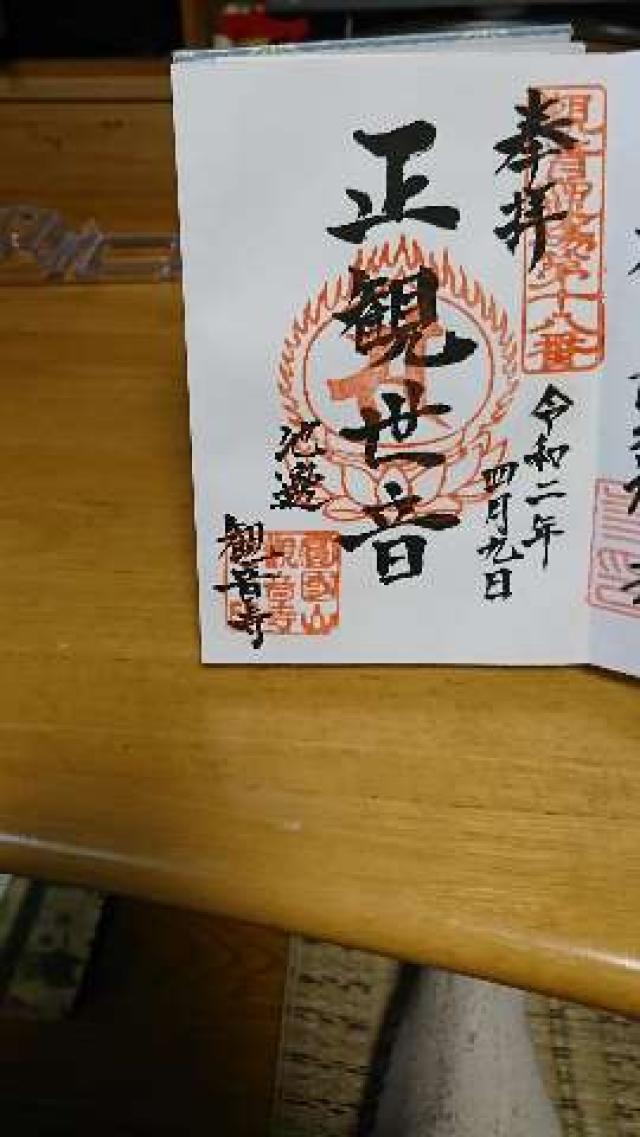 奉拝
観音霊場第十八番
令和二年
四月九日
正観世音
池邊
観音寺
観音寺